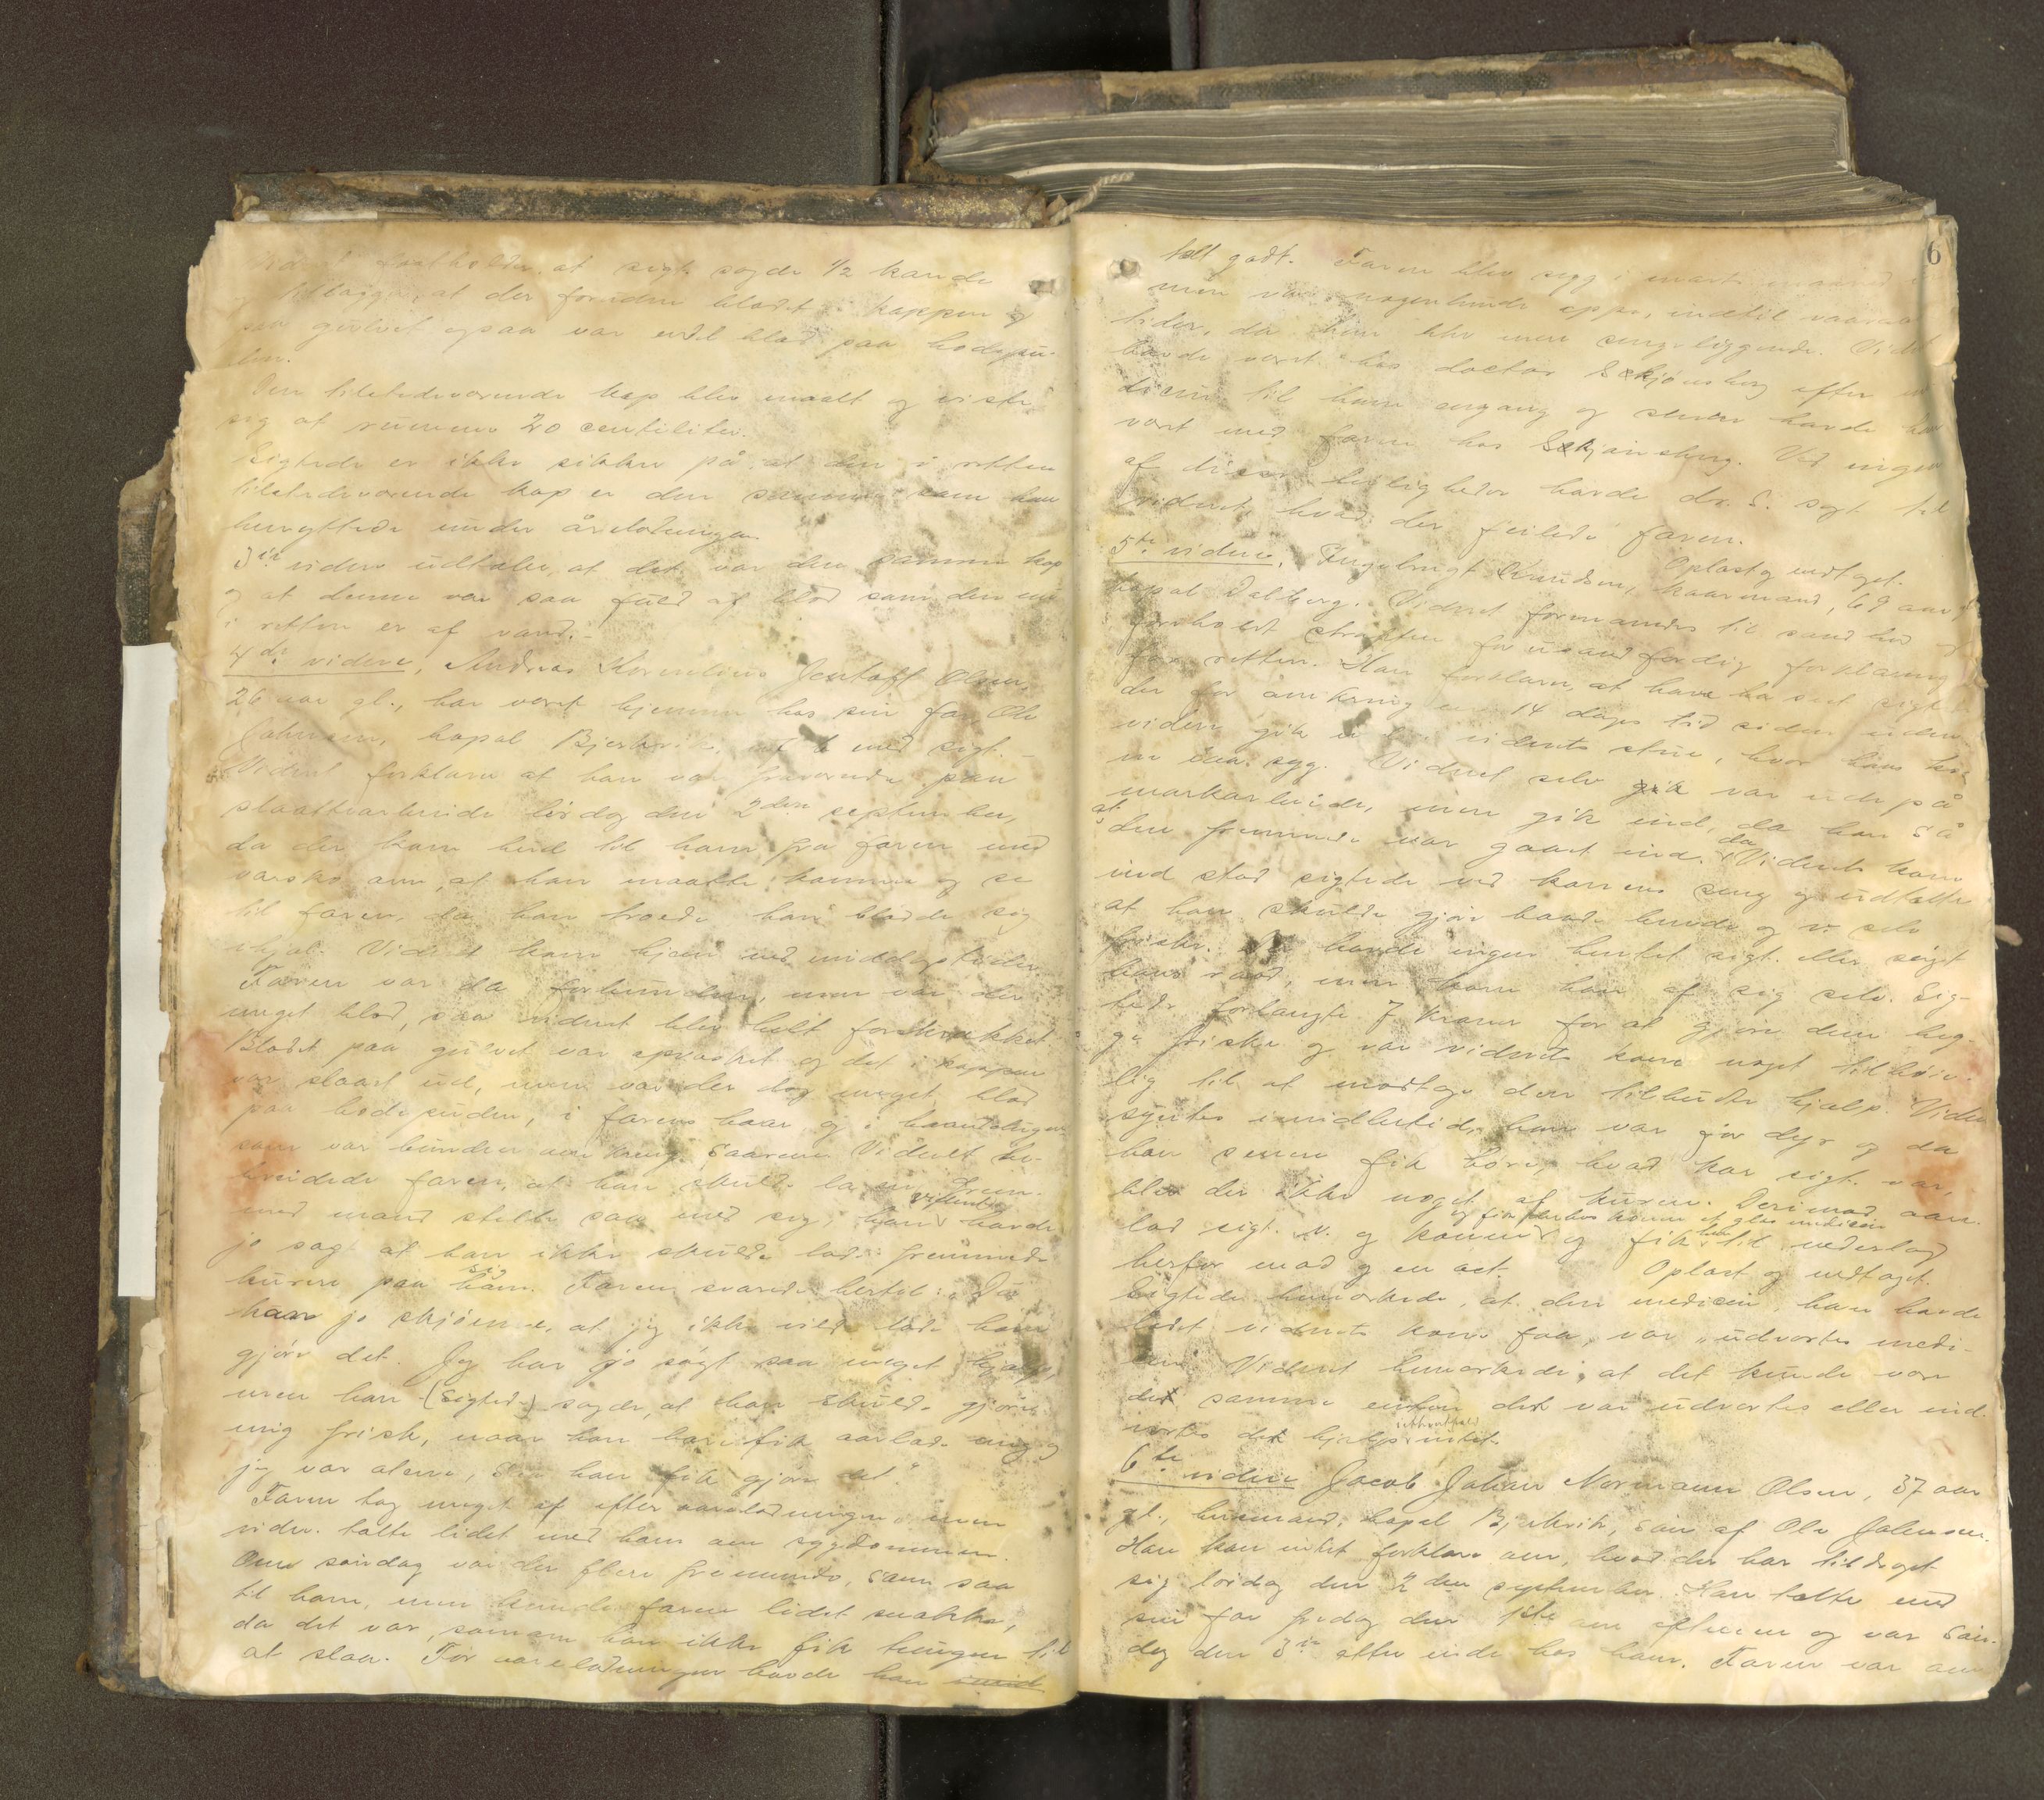 fastholder, at sigt. sagde 1/2 kande
tillægger, at der foruden blodet i koppen og
paa gulvet ogsaa var endel blod paa hodepu-
den.
Den tilstedeværende kop blev maalt og viste
sig at rumme 20 centiliter.
Sigtede er ikke sikker på, at den i retten
tilstedeværende kop er den samme som han
benyttede under åreladningen.
3die vidne udtaler, at det var den samme kop
og at denne var saa fuld af blod som den nu
i retten er af vand. -
4de vidne, Andreas Kornelius Jentoft Olsen,
26 aar gl., har været hjemme hos sin far, Ole
Johnsen, bopæl Bjerkvik, med sigt. -
Vidnet forklarer at han var fraværende paa
slaattearbeide lørdag den 2den september,
da der kom bud til ham fra faren med
varsko om, at han maatte komme og se
til faren, da han troede han blødde sig
ihjæl. Vidnet kom hjem ved middagstider.
Faren var da forbunden, men var der
meget blod, saa vidnet blev helt forskrækket.
Blodet paa gulvet var opvasket og det i koppen
var slaaet ud, men var der dog meget blod
paa hodepuden, i farens haar og i
som var bunden om kring saaret. Vidnet be-
breidede faren, at han skulde la en frem-
med mand stelle saa med sig; vidnet havde
jo sagt at han ikke skulde lade fremmede
kurere paa sig. Faren svarede hertil: "Du
kan jo skjønne, at jeg ikke vilde lade ham
gjøre det. Jeg har jo søgt saa meget hjælp,
men han (sigtede) sagde, at han skulde gjøre
mig frisk, naar han bare fik aarlade mig og
jeg var alene, saa han fik gjøre det."
Faren tog meget af efter aareladningen, men
vidn. talte lidet med ham om sygdommen.
Om søndag var der flere fremmede, som saa
til ham, men kunde faren lidet snakke,
da det var, som om han ikke fik tungen til
at slaa. Før aareladningen havde han
6
talt godt. Faren blev syg i marts maaned
men var nogenlunde oppe, indtil vaaraan
tider, da han blev mere sengeliggende. Vidnet
havde været hos doctor Skjønsberg efter me
dicin til ham engang og senere havde han
været med faren hos Skjønsberg. Ved ingen
af disse leiligheder havde dr. S. sagt til
vidnet hvad der feilede faren.
Oplæst og vedtaget.
5te vidne, Ingebrigt Knudsen, kaarmand, 69 aar,
bopæl Dalberg. Vidnet formanedes til sandhed og
foreholdt straffen for usandfærdig forklaring
for retten. Han forklarer, at have ha seet sigte
de for omkring en 14 dages tid siden
videre gik ind i vidnets stue, hvor hans ko
ne laa syg. Vidnet selv var ude på
markarbeide, men gik ind, da han så
at den fremmede var gaaet ind. da Vidnet kom
ind stod sigtede ved konens seng og udtalte
at han skulde gjøre baade hende og v. selv
friske. Der havde ingen hentet sigt. eller søgt
hans raad, men kom han af sig selv. Sig-
tede forlangte 7 kroner for at gjøre dem beg-
ge friske og var vidnets kone noget tilbøie-
lig til at modtage den tilbudte hjælp. Vidnet
syntes imidlertid, han var for dyr og da
han senere fik høre hvad kar sigt. var,
blev der ikke noget af kuren. Derimod aar-
og fik konen et glas medicin
lod sigt. v. og konen og fik han til vederlag
herfor mad og en ort. Oplæst og vedtaget.
Sigtede bemærkede, at den medicin, han havde
ladet vidnets kone faa, var "udvortes medi-
cin." Vidnet bemærkede, at det kunde være
det samme enten det var udvortes eller ind-
vortes det hjalp intet.
6te vidne Jacob Johan Normann Olsen, 37 aar
gl., bopæl Bjerkvik, søn af Ole Johnsen.
Han kan intet forklare om, hvad der har tildraget
sig lørdag den 2den september. Han talte med
sin far fredag den 1ste om aftenen og var søn-
dag den 3die atter inde hos ham. Faren var om